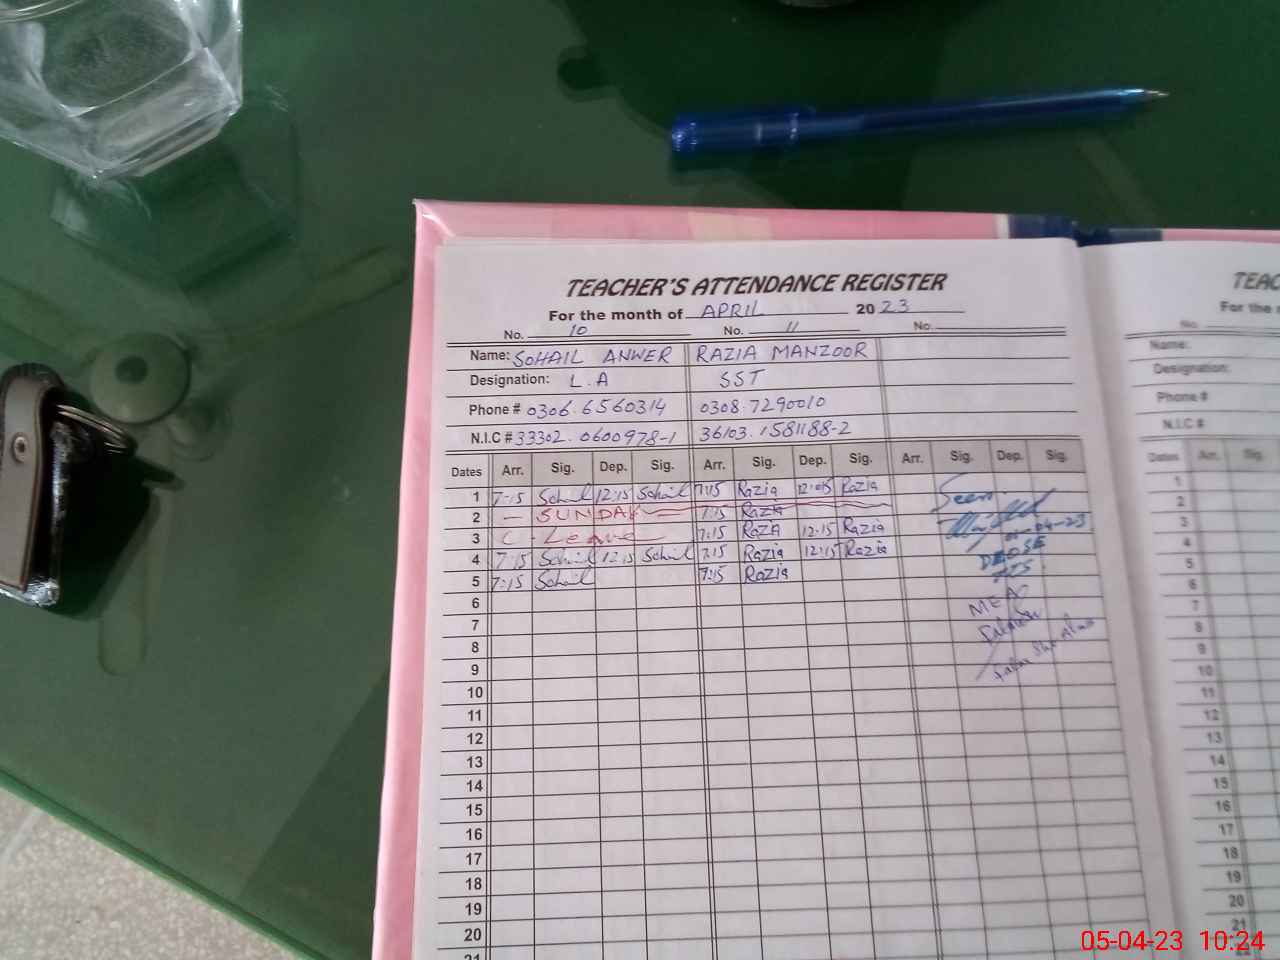 TEACHER'S ATTENDANCE REGISTER
For the month of APRIL 2023
No. 10 No. 11 No.
Name: SOHAIL ANWER RAZIA MANZOOR
Designation: L.A SST
Phone # 0306.6560314 0308.7290010
N.I.C # 33302.0600978-1 36103.1581188-2
Dates Arr. Sig. Dep. Sig. Arr. Sig. Dep. Sig. Arr. Sig. Dep. Sig.
1 7:15 Sohail 12:15 Sohail 7:15 Razia Razia
2 — SUNDAY 7:15 Razia
3 C - Leave 7:15 RaZA 12:15 Razia
4 7:15 Sohail 12:15 Sohail 7:15 Razia 12:15 Razia
5 7:15 Sohail 7:15 Razia
6
7
8
9
10
11
12
13
14
15
16
17
18
19
20
21
Seen.
04-23
MEA
TEAC
For the m
No.
Name:
Designation:
Phone #
N.I.C #
Dates Arr. Sig.
1
2
3
4
5
6
7
8
9
10
11
12
13
14
15
16
17
18
19
20
21
05-04-23 10:24